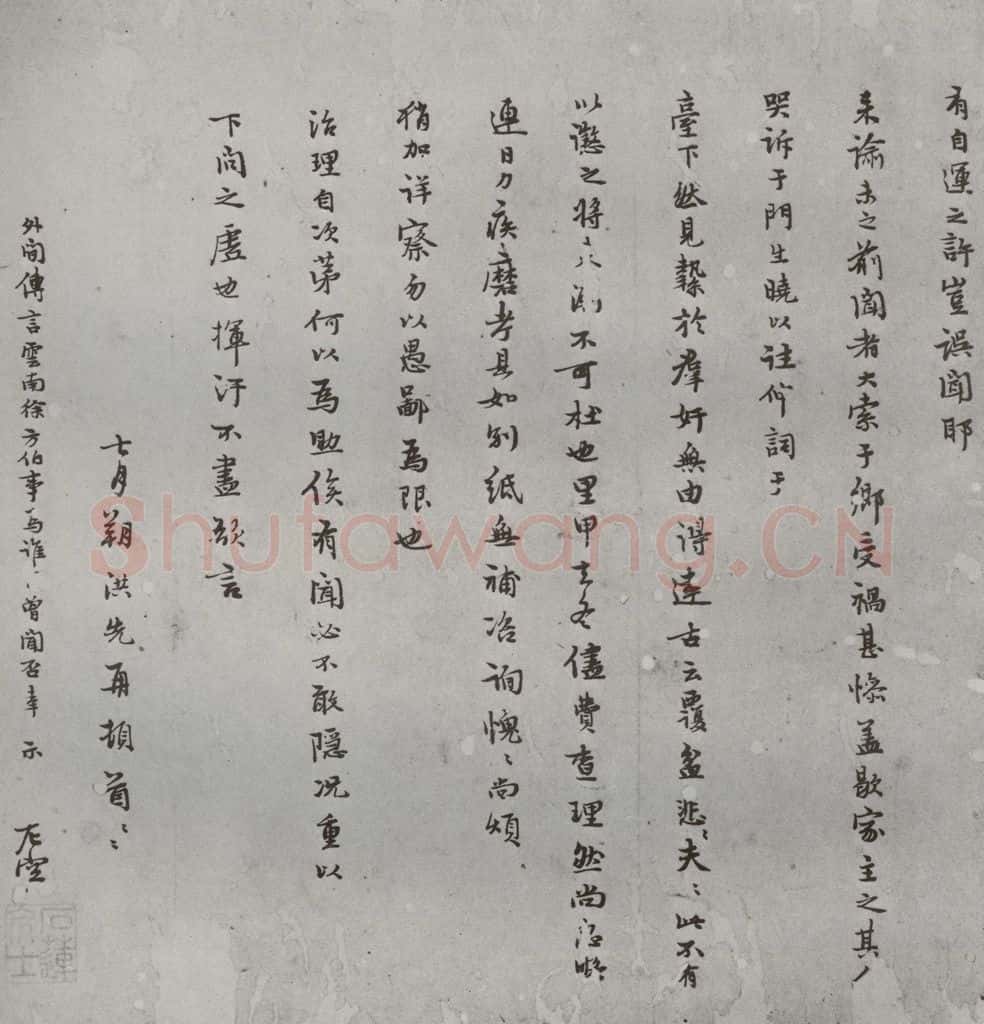 有自運之許豈誤聞耶
来諭未之前聞者大索于鄉受禍甚慘盖歇家主之其人
哭诉于門生曉以往 詞于
臺下然見縶於羣奸無由得達古云覆盆悲〻夫〻此不有
以懲之將來 不可杜也里甲去冬儘費查理然尚 
連日力疾磨考具如别紙無補冶詢愧〻尚頌
稍加详察勿以愚鄙為限也
治理自次第何以為助俟有聞必不敢隱况重以
下问之虚也揮汗不盡欲言
七月朔洪先再頓首〻
外间傳言雲南徐方伯事為誰〻曾聞否幸示 左空
石蓮居士
Shufawang.CN